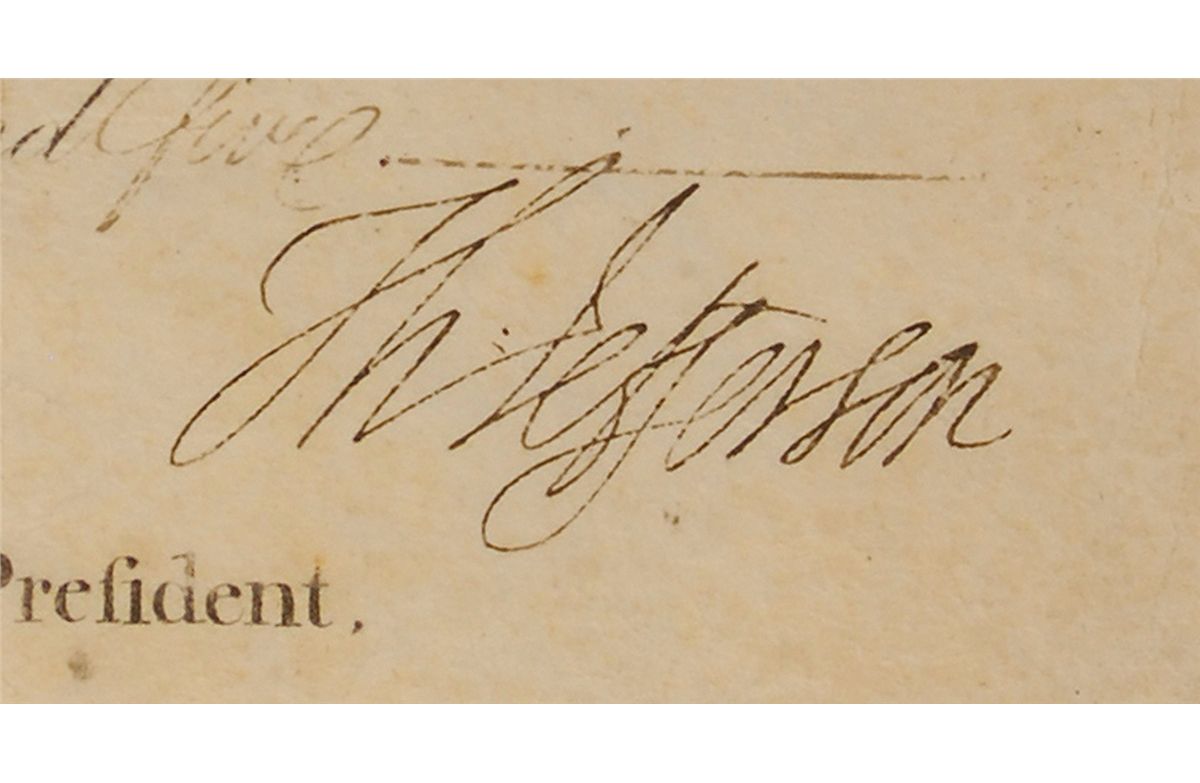 d five
Th: Jefferson
Preſident,